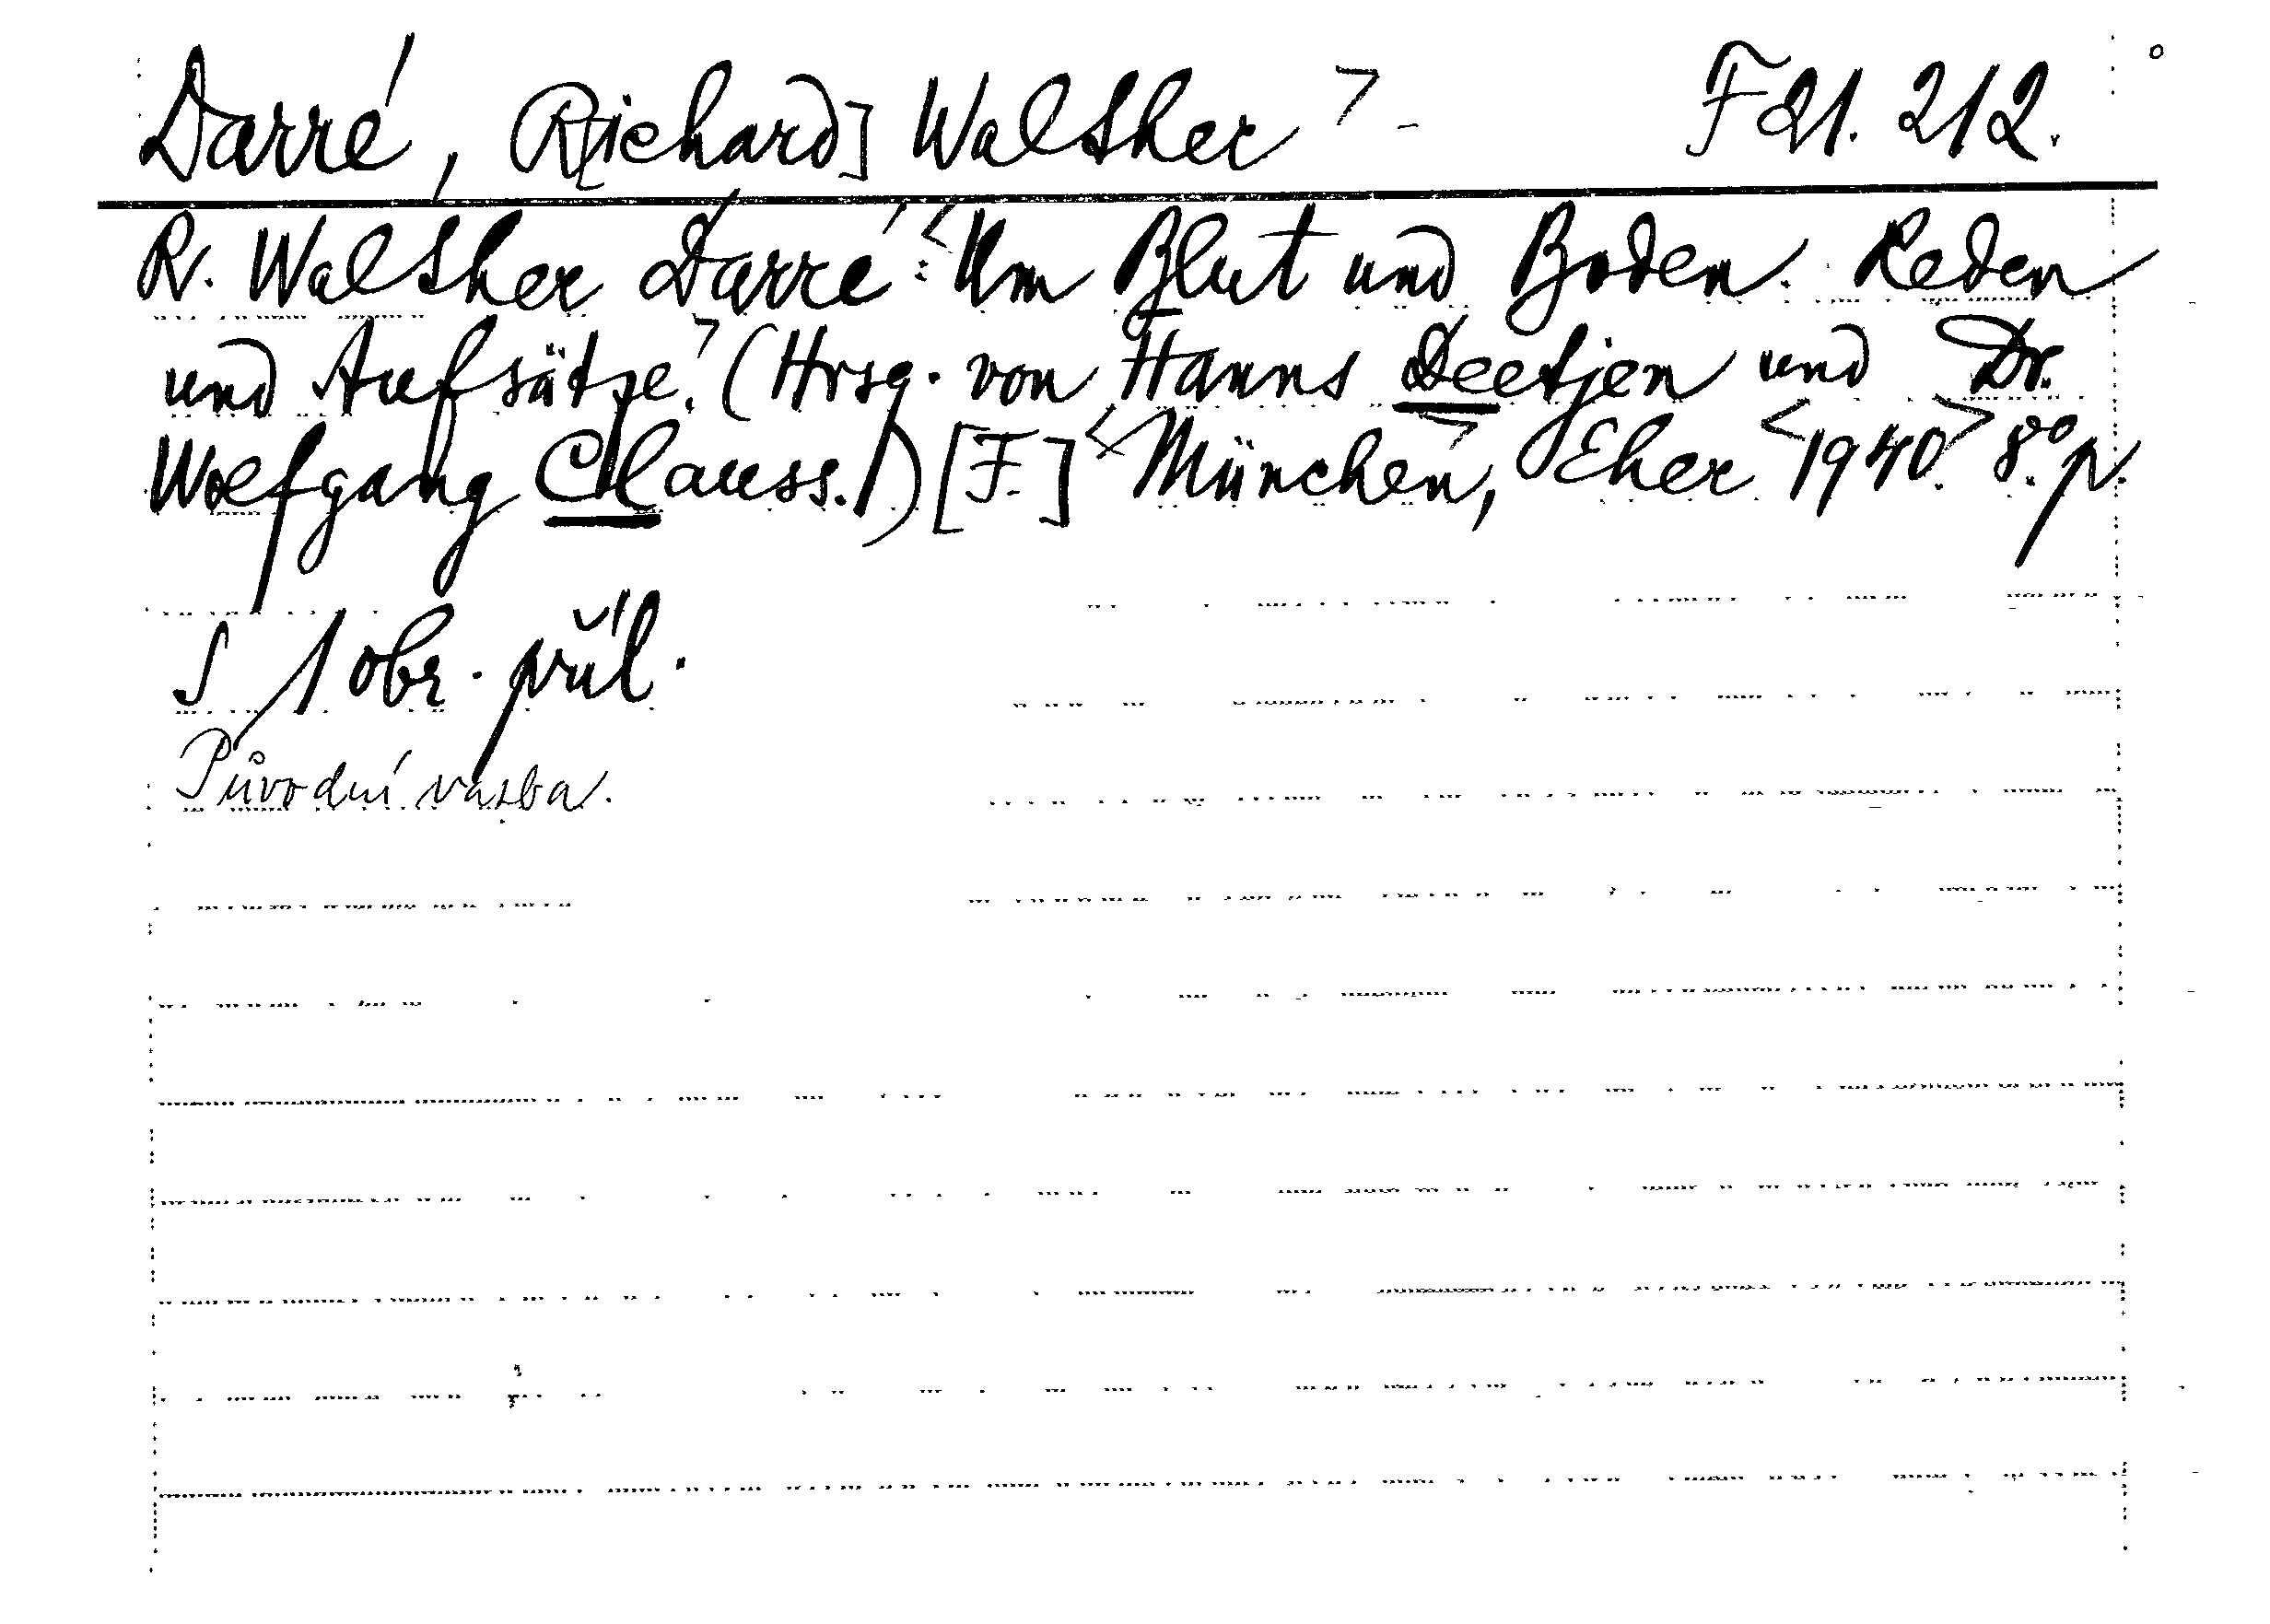 Darré, R[ichard] Walther > - F 21. 212.
R. Walther Darré: <Um Blut und Boden. Reden
und Aufsätze.> (Hrsg. von Hanns Deetjen und Dr.
Wolfgang Clauss.) [F.] <München>, Eher <1940.> 8° p.
S 1 obr. příl.
Původní vazba.